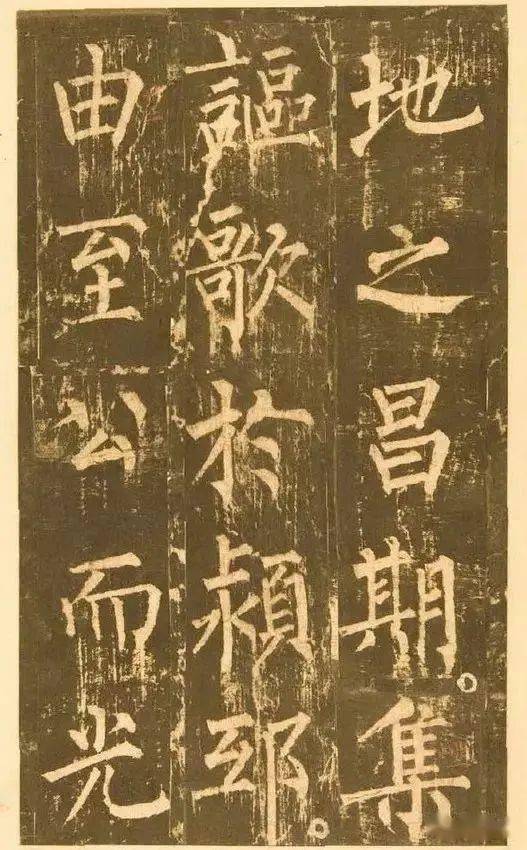 地之昌期。集
謳歌於潁邸。
由至公而光